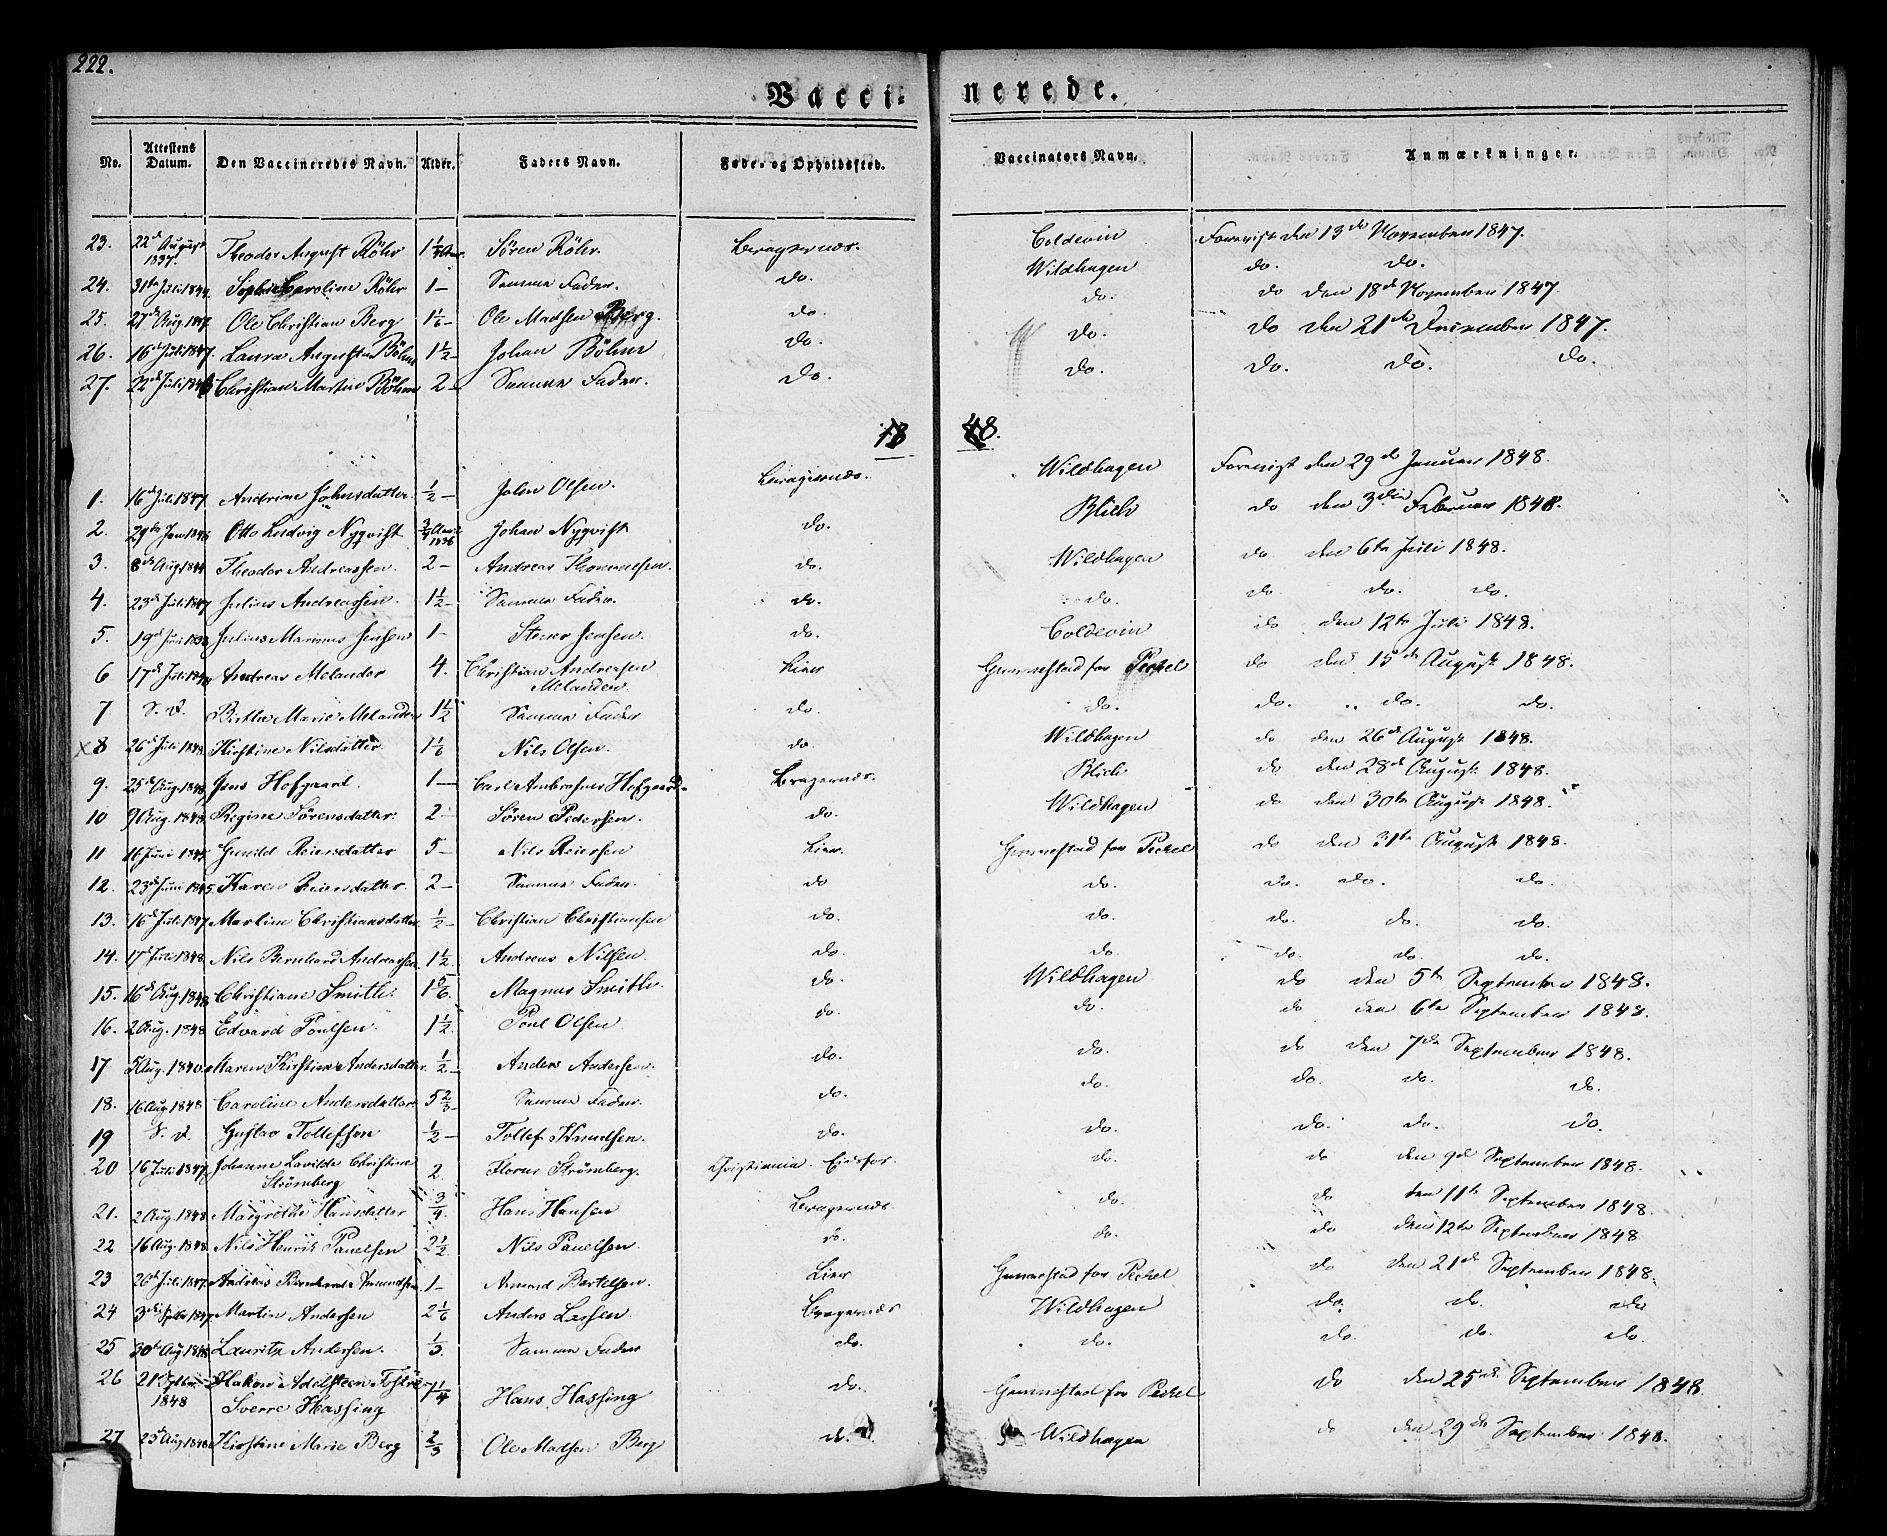 222.
Vacci- nerede.
No. Attestens Datum. Den Vaccineredes Navn. Alder. Faders Navn. Føde- og Opholdssted. Vaccinators Navn. Anmærkninger.
23. 22de August 1837. Theodor August Röhr 1 1/4 Søren Röhr. Bragernæs. Coldevin Foreviist den 13de November 1847.
24. 31te Juli Sophie Caroline Röhr 1 — Samme Fader. do. Wildhagen do. do.
25. 27de Aug. 1847. Ole Christian Berg 1 1/6 — Ole Madsen Berg. do. do. do den 18de November 1847.
26. 16de Juli 1847. Laura Augusta Böhm 1 1/2 — Johan Böhm do. do. do den 21de December 1847.
27. 22de Juli Christian Martin Böhm 2 — Samme Fader. do. do. do. do. do.
18 48.
1. 16de Juli 1847. Andrine Johnsdatter 1/2 — John Olsen. Bragernæs. Wildhagen Foreviist den 29de Januar 1848.
2. 29de Jan. Otto Ludvig Nyqvist 3/4 1836 Johan Nyqvist do. Blich do den 3die Februar 1848.
3. 8de Aug. Theodor Andreassen. 2 — Andreas Thommesen. do. Wildhagen do den 6te Juli 1848.
4. 23de Juli 1847 Julius Andreassen. 1 1/2 — Samme Fader. do. do. do do. do.
5. 19de Juni Julius Marinus Jensen 1 — Steen Jensen. do. Coldevin do den 12te Juli 1848.
6 17de Juli Andreas Melander 4. Christian Andresen Melander. Lier Gunnestad for Pechel do den 15de August 1848.
7 S. d. Birthe Marie Melander 1 1/2 Samme Fader do. do. do. do. do.
x 8 26de Juli 1848. Kirstine Nilsdatter. 1 1/6 Nils Olsen. do. Wildhagen do den 26de August 1848.
9. 25de Aug. 1848 Jens Hofgaard. 1 — Carl Ambrosius Hofgaard. Bragernæs. Blich do den 28de August 1848.
10 9 Aug. 1848. Regine Sørensdatter. 2 — Søren Pedersen. do. Wildhagen do den 30te August 1848.
11 16 Juni Gunild Reiersdatter 5 — Nils Reiersen Lier. Gunnestad for Pechel do den 31te August 1848.
12. 23de Juni 1845. Karen Reiersdatter. 2 — Samme Fader. do do. do. do. do.
13. 16de Juli 1847. Martine Christiansdatter. 1/2 — Christian Christiansen do. do. do. do. do.
14. 17de Juli 1848. Nils Bernhard Andreassen 1 1/2. Andreas Nilsen. do. do. do. do. do.
15. 16de Aug. 1848. Christiane Smith. 1 5/6. Magnus Smith. do. Wildhagen do den 5te September 1848.
16. 2 Aug. 1848 Edvard Poulsen. 1 1/2. Poul Olsen do. do. do den 6te September 1848.
17 5 Aug. 1840. Maren Kirstine Andersdatter. 1/2 — Anders Andersen. do. do. do den 7de September 1848.
18. 16 Aug 1848 Caroline Andersdatter 5 2/3 — Samme Fader. do. do. do. do. do.
19 S. d. Gustav Tollefsen 1/2 — Tollef Knudsen. do. do. do. do. do.
20 16 Juli 1847. Johanne Lavilde Christine Strömberg 2. Strømberg. Christiania. do. do den 9de September 1848.
21. 2 Aug. 1848. Margrethe Hansdatter 3/4. Hans Hansen Bragernæs do. do den 11te September 1848.
22 16 Aug. 1848 Nils Henrik Paulsen 2 1/2 Nils Paulsen. do. do. do den 12te September 1848.
23 26de Juli 1847. Andreas Bernhard Amundsen 1 — Amund Bertelsen. Lier Gunnestad for Pechel do den 21de September 1848.
24 3de Septbr 1847 Martin Andersen 2 1/6 Anders Larsen. Bragernæs Wildhagen do. do. do
25 30te Aug 1848 Lauritz Andersen. 1/3. Samme Fader do. do. do. do. do.
26 21de Septbr 1848 Hakon Adelsteen Sverre Hassing 1 1/4 Hans Hassing do. Gunnestad for Pechel do den 25de September 1848
27 25de Aug 1848 Kirstine Marie Berg 2/3 Ole Madsen Berg do. Wildhagen do den 29de September 1848.